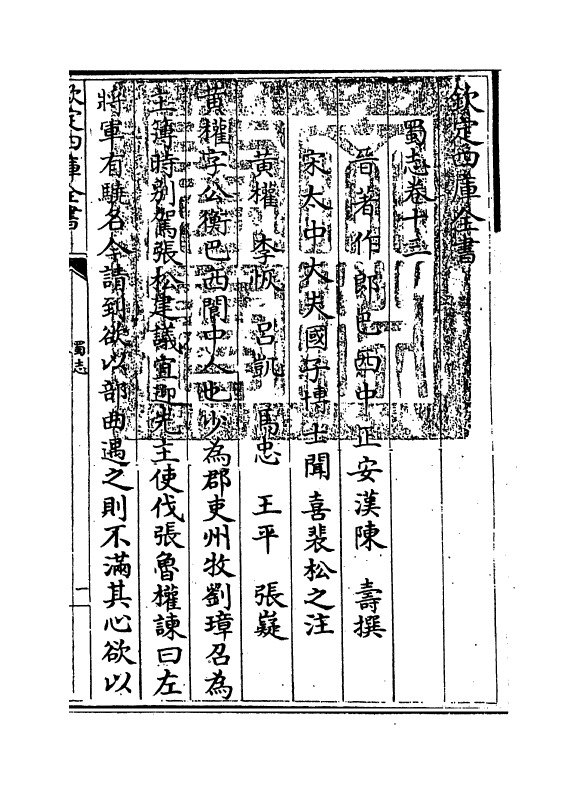 欽定四庫全書
蜀志卷十三
晉著作郎巴西中正安漢陳壽撰
宋太中大夫國子博士聞喜裴松之注
黄權 李恢 吕凱 馬忠 王平 張嶷
黄權字公衡巴西閬中人也少為郡吏州牧劉璋召為
主簿時别駕張松建議宜迎先主使伐張魯權諫曰左
將軍有驍名今請到欲以部曲遇之則不滿其心欲以
欽定四庫全書
蜀志
一